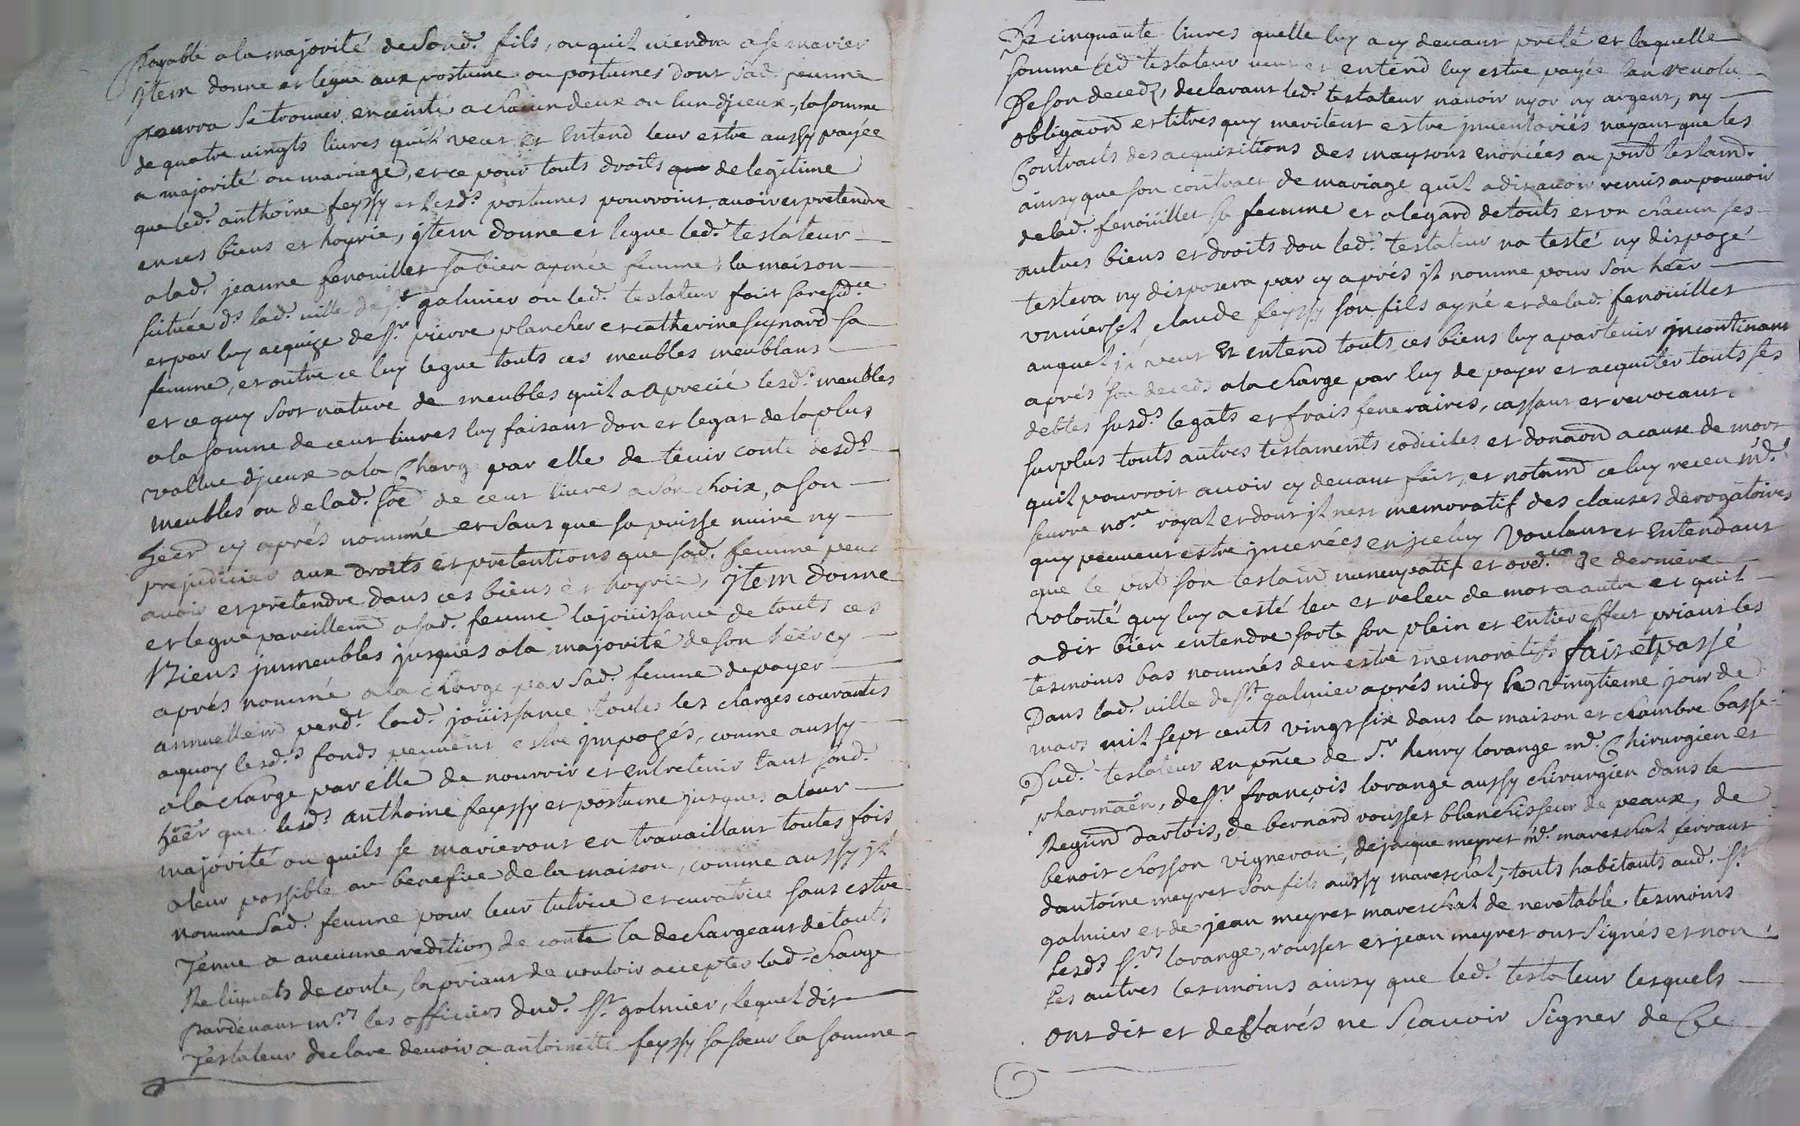 payable a la majorité de Sond. fils, ou quil viendra a se marier
jtem donne et legue aux postume ou postumes dont sad. femme
pourra se trouver enceinte a chacun deux ou lun djceux, la somme
de quatre vingts livres quil veut et entend leur estre aussy payée
a majorité ou mariage, et ce pour touts droits de legitime
que led. anthoine feyssy et lesd. postumes pourroint avoir et pretendre
en ces biens et hoyrie, jtem donne et legue led. testateur
a lad. jeanne fenouillet sa bien aymée femme, la maison
scituée ds lad. ville de st galmier ou led. testateur fait sa resid.ce
et par luy acquize de sr pierre plancher et catherine seynard sa
femme, et outre ce luy legue touts ces meubles meublans
et ce quy sont nature de meubles quil a aprecié lesd. meubles
a la somme de cent livres luy faisant don et legat de la plus
vallue djceux a la charge par elle de tenir conte desd.
meubles ou de lad. soe de cent livres a son choix, a son
heer cy aprés nommé et sans que sa puisse nuire ny
prejudicier aux droits et pretentions que sad. femme peut
avoir et pretendre dans ces biens et hoyrie, jtem donne
et legue pareillem a sad. femme la joüissance de touts ces
Biens jmmeubles jusques a la majorité de son héer cy
aprés nommé a la charge par sad. femme de payer
annuellem pend.t lad. joüissance toutes les charges courantes
a quoy lesd. fonds peuvent estre jmposés, comme aussy
a la charge par elle de nourrir et entretenir tant sond.
héer que lesd. anthoine feyssy et postume jusques a leur
majorité ou quils se marieront en travaillant toutes fois
a leur possible au benefice de la maison, comme aussy jl
nomme sad. femme pour leur tutrice et curatrice sans estre
Tenue a aucunne redition de conte la dechargeant de touts
Reliquats de conte, la priant de vouloir accepter lad. charge
pardevant mrs les officiers dud. st galmier, lequel dit
Testateur declare devoir a antoinette feyssy sa sœur la somme
De cinquante livres quelle luy a cy devant preté et laquelle
somme led testateur veut et entend luy estre payée lan revolu
De son deced, declarant led. testateur navoir ny or ny argent, ny
obligaõnd et titres quy meritent estre jnventoriés nayant que les
Contraits des acquisitions des maysons enoncées au pnt testamd.
ainsy que son contract de mariage quil a dit avoir remis au pouvoir
de lad. fenoüillet sa femme et a legard de touts et un chacun ses
autres biens et droits dou led. testateur na testé ny disposé
testera ny disposera par cy aprés jl nomme pour son héer
universel claude feyssy son fils ayné et de lad. fenouillet
auquel jl veut et entend touts ces biens luy apartenir jncontinant
aprés son deceds a la charge par luy de payer et acquiter touts ses
debtes susd. legats et frais feneraires, cassant et revocant
surplus touts autres testaments codiciles et donaõnd a cause de mort
quil pourroit avoir cy devant fait, et notamd celuy receu md.
feurre no.re royal et dont jl nest memoratif des clauses derogatoires
quy peuvent estre jncerées en jceluy voulant et entendant
que le pnt son testamd nuncupatif et ord.ce de derniere
volonté quy luy a esté leu et releu de mot a autre et quil
a dit bien entendre sorte son plein et entier effect priant les
tesmoins bas nommés den estre memoratifs fait et passé
Dans lad. ville de st galmier aprés midy le vingtieme jour de
mars mil sept cents vingt six dans la maison et chambre basse
Dud. testateur en pn̄ce de Sr henry lorange md. Chirurgien et
pharmaēn, de sr françois lorange aussy chirurgien dans le
Regimd dartois, de bernard rousset blanchisseur de peaux, de
benoit chosson vigneron, de jacque meyret md. mareschal ferrant
dantoine meyret son fils aussy mareschal, touts habitants aud. st
galmier et de jean meyret mareschal de nevetable tesmoins
Lesd. srs lorange, rousset et jean meyret ont Signés et non
les autres tesmoins ainsy que led. testateur lesquels
ont dit et declarés ne Scavoir Signer de Ce